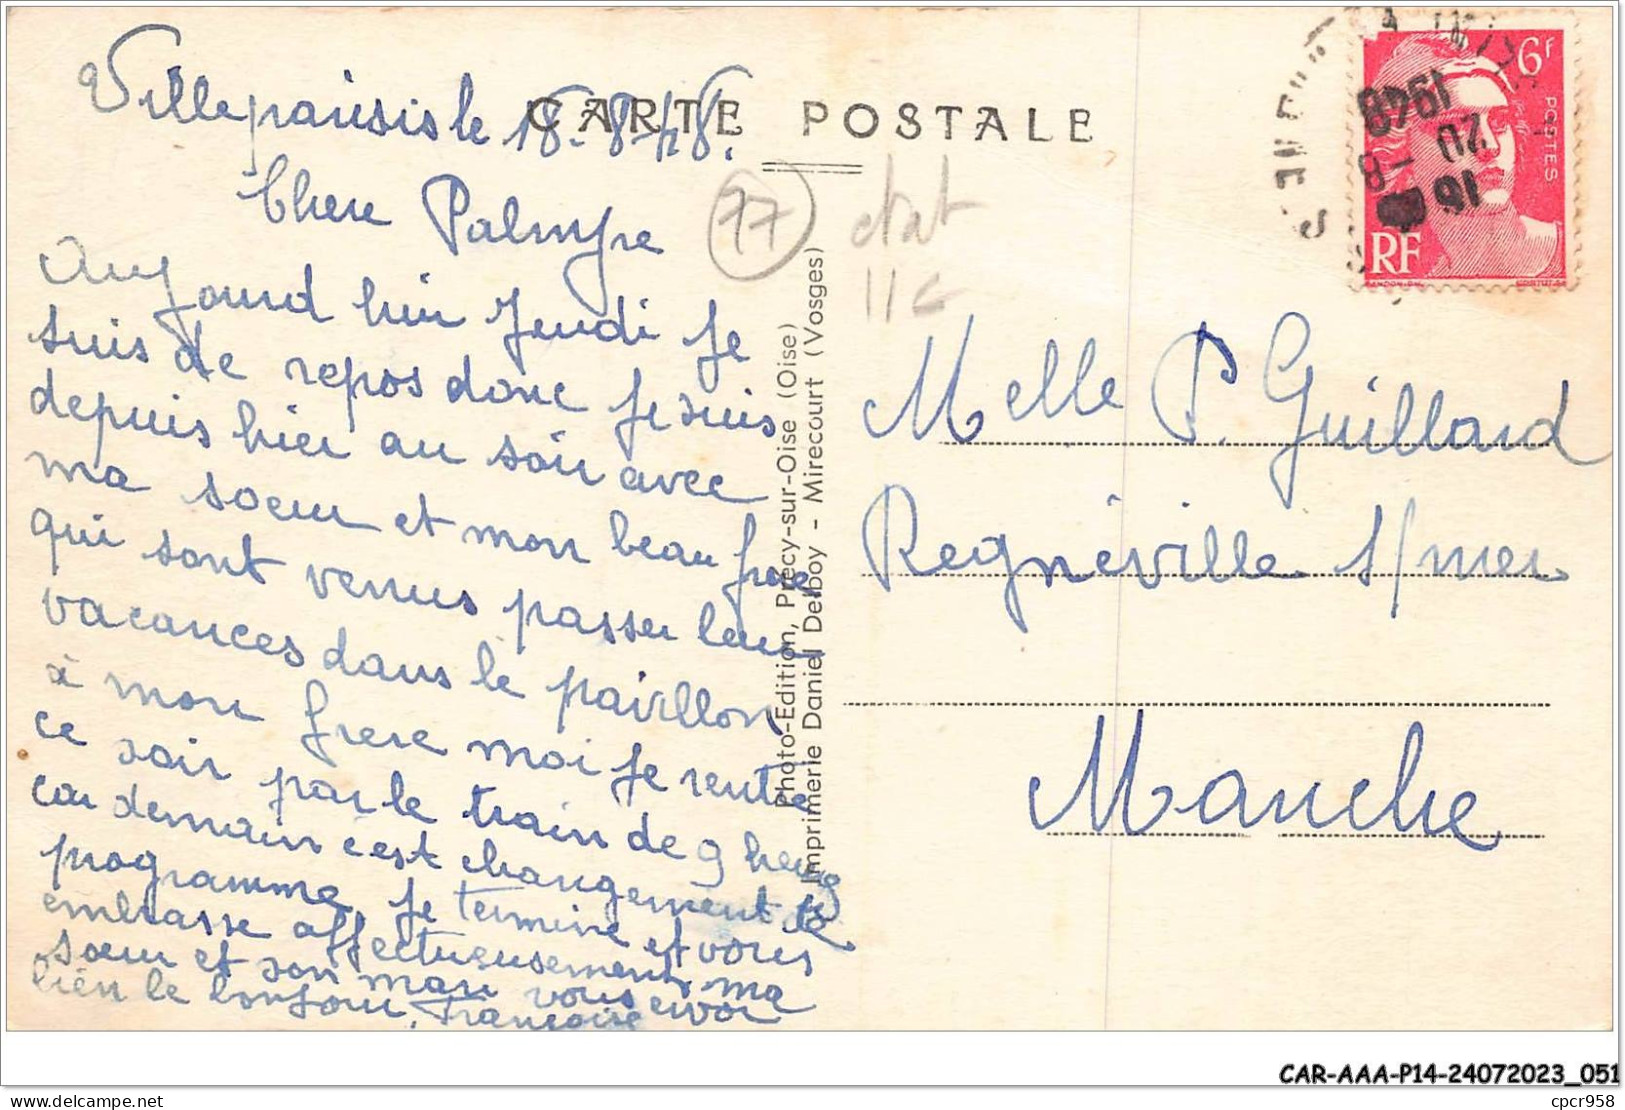 CARTE POSTALE
Villeparisis le 18-8-48.
Chere Palmyre
Aujourd hui Jeudi Je
suis de repos donc Je suis
depuis hier au soir avec
ma soeur et mon beau frere
qui sont venus passer leur
vacances dans le pavillon
à mon frere moi Je rentre
ce soir par le train de 9 heures
car demain c'est changement de
programme Je termine et vous
embrasse affectueusement ma
soeur et son mari vous envoi
bien le bonjour. Françoise
77
etat
11€
Photo-Edition, Précy-sur-Oise (Oise)
Imprimerie Daniel Delboy - Mirecourt (Vosges)
6F
POSTES
RF
GANDON.
16
20 - 8
1948
Melle P. Guillard
Regnéville s/mer
Manche
CAR-AAA-P14-24072023_051
delcampe.net
cpcr958